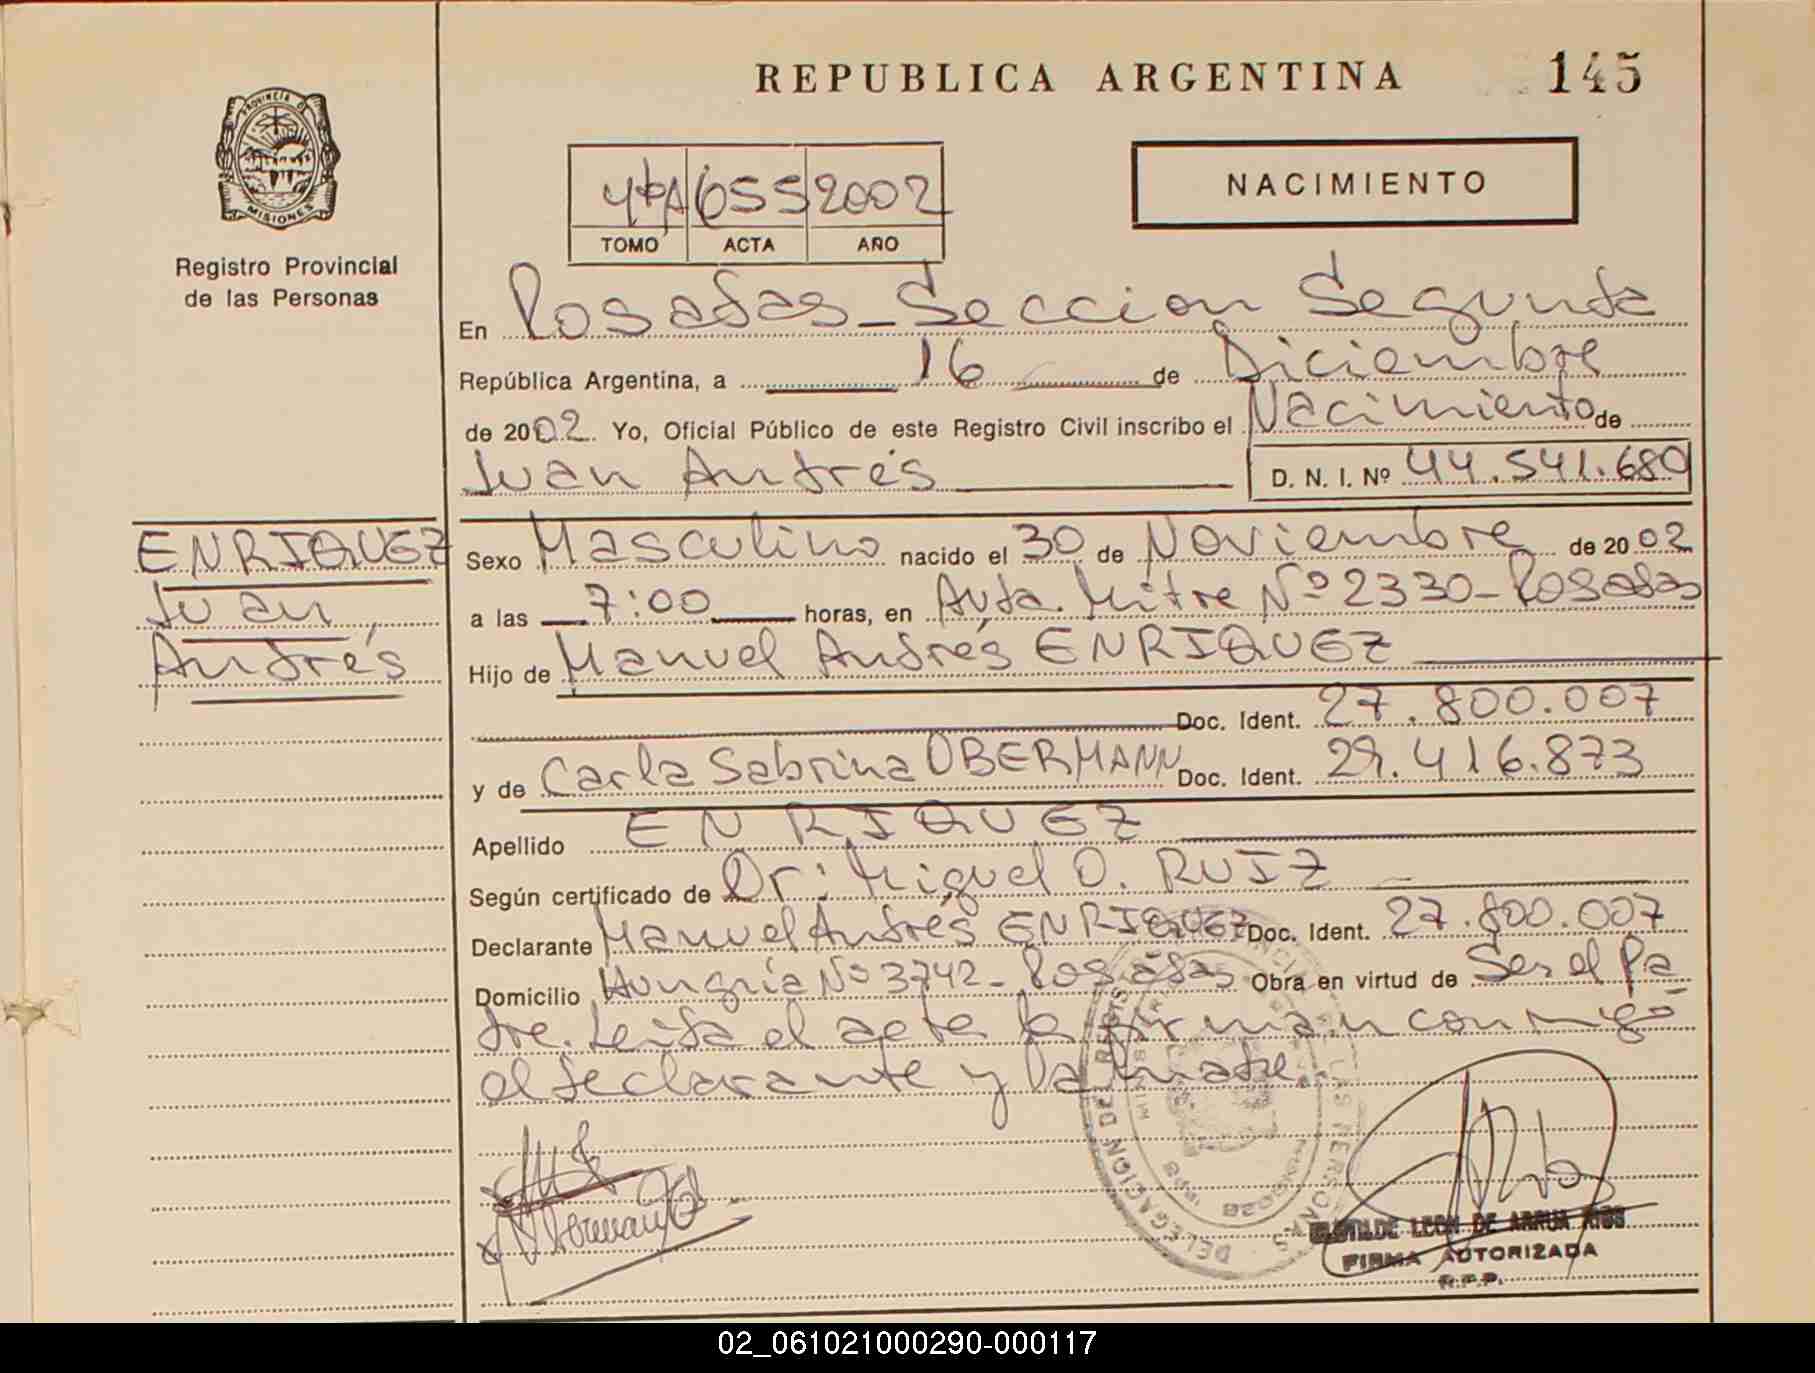 REPUBLICA ARGENTINA
145
PROVINCIA D
MISIONES
Registro Provincial
de las Personas
NACIMIENTO
4tºA 655 2002
TOMO ACTA AÑO
En Posadas - Seccion Segunda
República Argentina, a 16 de Diciembre
de 2002. Yo, Oficial Público de este Registro Civil inscribo el Nacimiento de
Juan Andrés
D. N. I. Nº 44.541.680
ENRIQUEZ
Juan
Andrés
Sexo Masculino nacido el 30 de Noviembre de 2002
a las 7:00 horas, en Avda. Mitre Nº 2330 - Posadas
Hijo de Manuel Andrés ENRIQUEZ
Doc. Ident. 27.800.007
y de Carla Sabrina OBERMANN Doc. Ident. 29.416.873
Apellido ENRIQUEZ
Según certificado de Dr: Miguel O. RUIZ
Declarante Manuel Andrés ENRIQUEZ Doc. Ident. 27.800.007
Domicilio Hungría Nº 3742 - Posadas Obra en virtud de Ser el Pa
dre. Leida el acta la firman conmigo
el declarante y la madre
DELEGACION DE REGIS LAS PERSONAS
LEON DE ARRUA RIOS
FIRMA AUTORIZADA
R.P.P.
02_061021000290-000117